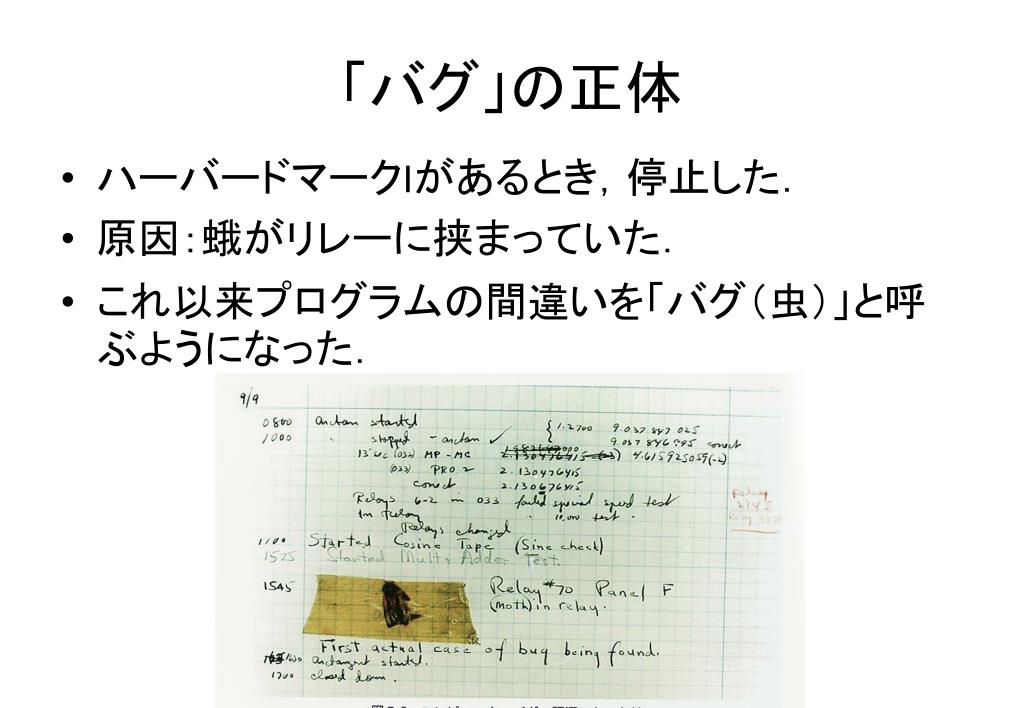 「バグ」の正体
• ハーバードマークIがあるとき，停止した．
• 原因：蛾がリレーに挟まっていた．
• これ以来プログラムの間違いを「バグ（虫）」と呼
ぶようになった．
9/9
0800 Antan started
1000 " stopped - antan ✓ { 1.2700 9.037 847 025
9.037 846 795 conect
13"uc (032) MP - MC 2.130476415 4.615925059(-2)
(033) PRO 2 2.130476415
conect 2.130676415
Relays 6-2 in 033 failed special speed test
In Relay " 10.000 test .
Relays changed
1100 Started Cosine Tape (Sine check)
1525 Started Mult + Adder Test.
1545 Relay #70 Panel F
(Moth) in relay.
First actual case of bug being found.
1630 antangent started.
1700 closed down.